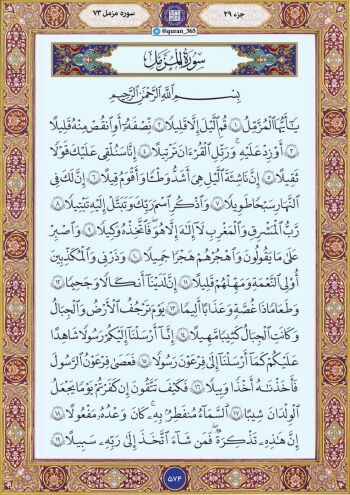 جزء ۲۹
سوره مزمل ۷۳
@quran_365
سُورَةُ الْمُزَّمِّلِ
بِسْمِ اللَّهِ الرَّحْمَٰنِ الرَّحِيمِ
يَا أَيُّهَا الْمُزَّمِّلُ ۝١ قُمِ اللَّيْلَ إِلَّا قَلِيلًا ۝٢ نِصْفَهُ أَوِ انْقُصْ مِنْهُ قَلِيلًا
۝٣ أَوْ زِدْ عَلَيْهِ وَرَتِّلِ الْقُرْآنَ تَرْتِيلًا ۝٤ إِنَّا سَنُلْقِي عَلَيْكَ قَوْلًا
ثَقِيلًا ۝٥ إِنَّ نَاشِئَةَ اللَّيْلِ هِيَ أَشَدُّ وَطْئًا وَأَقْوَمُ قِيلًا ۝٦ إِنَّ لَكَ فِي
النَّهَارِ سَبْحًا طَوِيلًا ۝٧ وَاذْكُرِ اسْمَ رَبِّكَ وَتَبَتَّلْ إِلَيْهِ تَبْتِيلًا ۝٨
رَبُّ الْمَشْرِقِ وَالْمَغْرِبِ لَا إِلَٰهَ إِلَّا هُوَ فَاتَّخِذْهُ وَكِيلًا ۝٩ وَاصْبِرْ
عَلَىٰ مَا يَقُولُونَ وَاهْجُرْهُمْ هَجْرًا جَمِيلًا ۝١٠ وَذَرْنِي وَالْمُكَذِّبِينَ
أُولِي النَّعْمَةِ وَمَهِّلْهُمْ قَلِيلًا ۝١١ إِنَّ لَدَيْنَا أَنْكَالًا وَجَحِيمًا ۝١٢
وَطَعَامًا ذَا غُصَّةٍ وَعَذَابًا أَلِيمًا ۝١٣ يَوْمَ تَرْجُفُ الْأَرْضُ وَالْجِبَالُ
وَكَانَتِ الْجِبَالُ كَثِيبًا مَهِيلًا ۝١٤ إِنَّا أَرْسَلْنَا إِلَيْكُمْ رَسُولًا شَاهِدًا
عَلَيْكُمْ كَمَا أَرْسَلْنَا إِلَىٰ فِرْعَوْنَ رَسُولًا ۝١٥ فَعَصَىٰ فِرْعَوْنُ الرَّسُولَ
فَأَخَذْنَاهُ أَخْذًا وَبِيلًا ۝١٦ فَكَيْفَ تَتَّقُونَ إِنْ كَفَرْتُمْ يَوْمًا يَجْعَلُ
الْوِلْدَانَ شِيبًا ۝١٧ السَّمَاءُ مُنْفَطِرٌ بِهِ كَانَ وَعْدُهُ مَفْعُولًا ۝١٨
إِنَّ هَٰذِهِ تَذْكِرَةٌ فَمَنْ شَاءَ اتَّخَذَ إِلَىٰ رَبِّهِ سَبِيلًا ۝١٩
۵۷۴